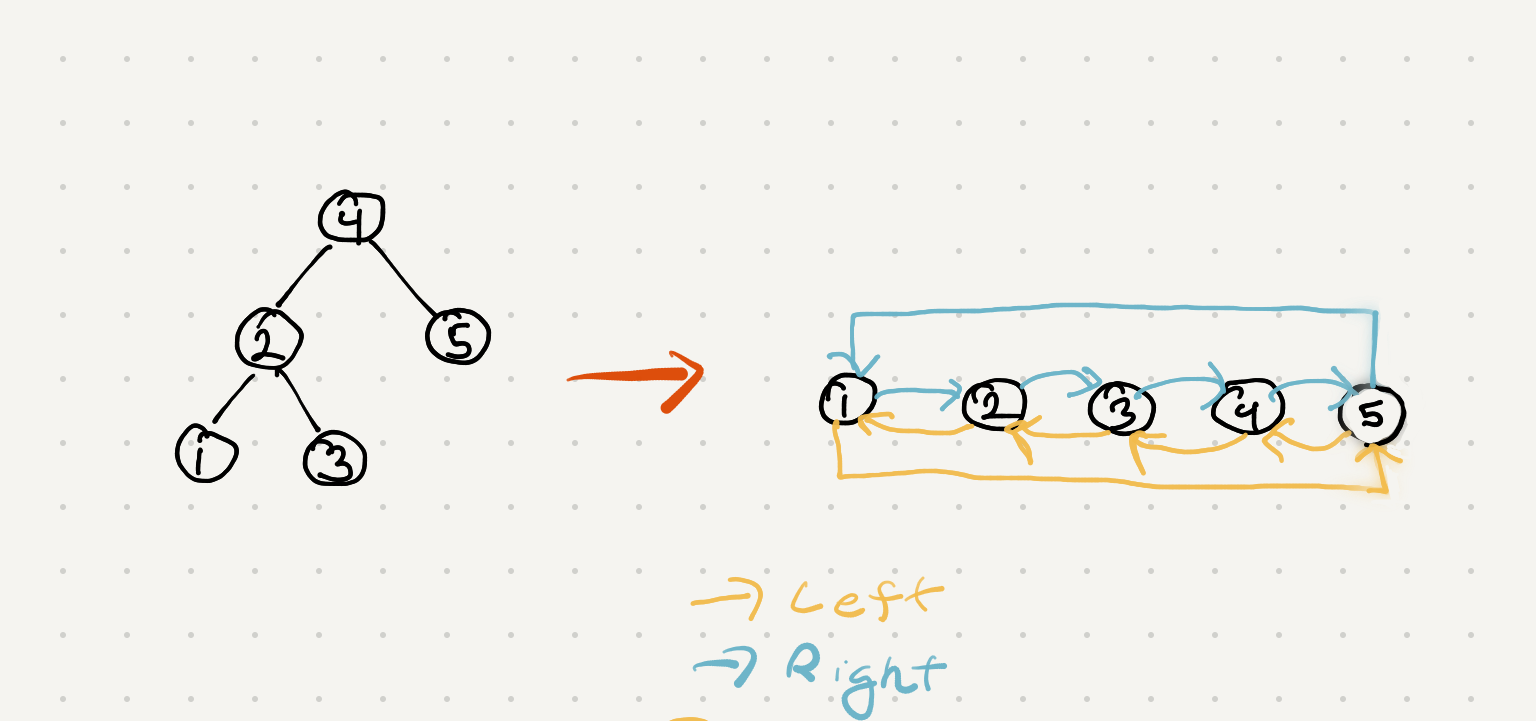 4
2 5
1 3
1 2 3 4 5
→ Left
→ Right